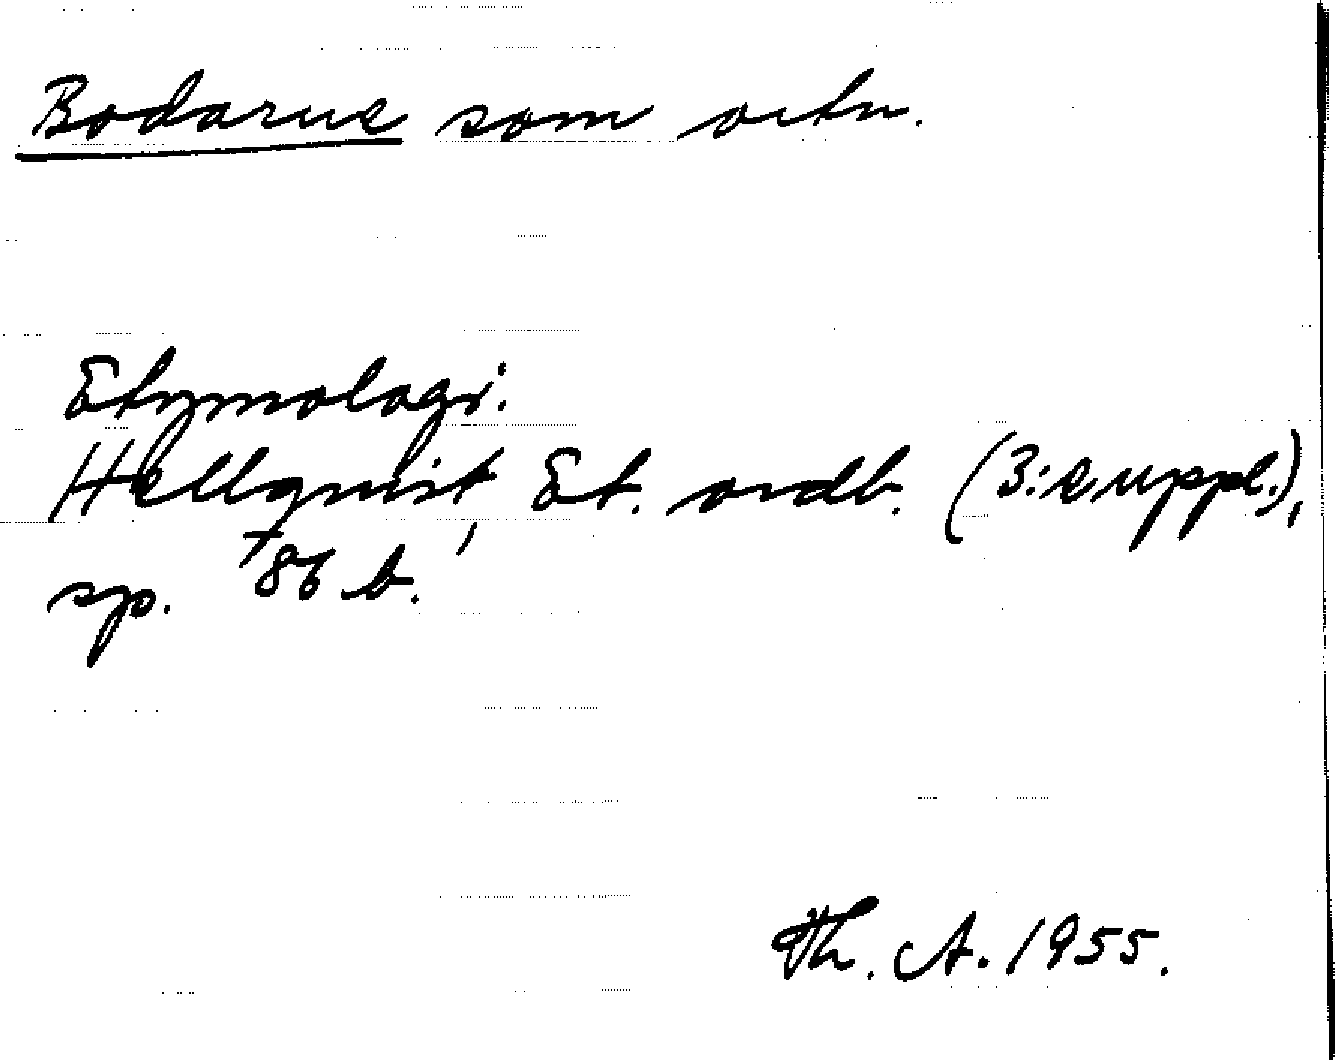 Bodarne som ortn.
Etymologi:
Hellqvist, Et. ordb. (3:e uppl.),
sp. 86 b.
Th. A. 1955.